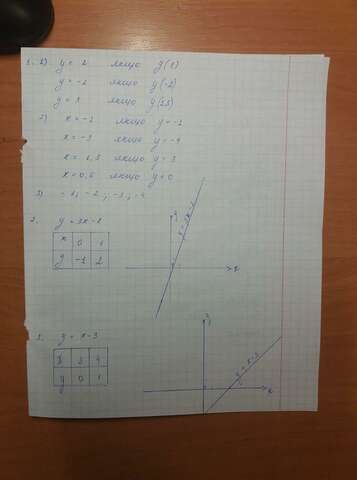 1. 1) y = 2 якщо y(1)
y = -2 якщо y(-2)
y = 3 якщо y(2,5)
2) x = -2 якщо y = -2
x = -3 якщо y = -4
x = 2,5 якщо y = 3
x = 0,5 якщо y = 0
3) -1; -2; -3; -4
2. y = 3x - 1
x 0 1
y -1 2
y
y = 3x - 1
x
3. y = x - 3
x 3 4
y 0 1
y
y = x - 3
x